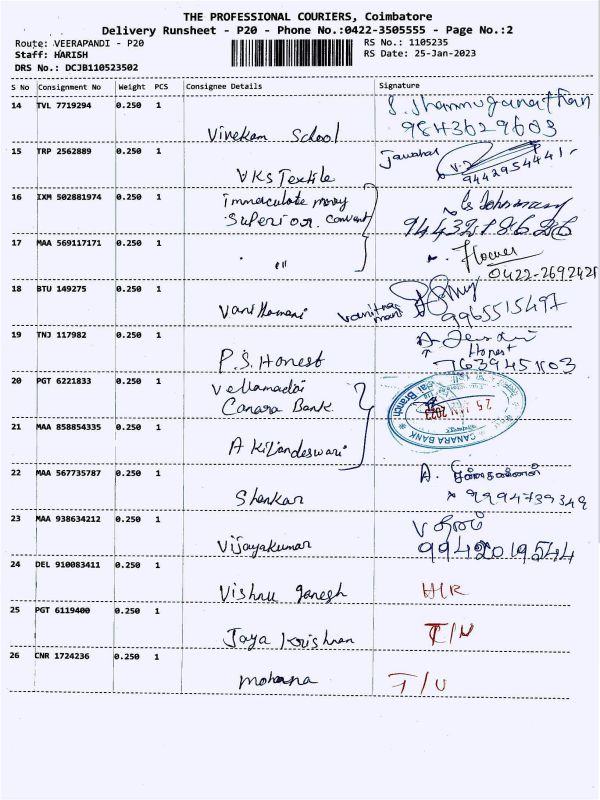 THE PROFESSIONAL COURIERS, Coimbatore
Delivery Runsheet - P20 - Phone No.:0422-3505555 - Page No.:2
Route: VEERAPANDI - P20
RS No.: 1105235
Staff: HARISH
RS Date: 25-Jan-2023
DRS No.: DCJB110523502
S No Consignment No Weight PCS Consignee Details Signature
14 TVL 7719294 0.250 1 Vivekam School
S. Shanmuganathan
9843629603
15 TRP 2562889 0.250 1 VKS Textile
Jawahar
9442954441
16 IXM 502881974 0.250 1 immaculate
Superior convent
9443218626
17 MAA 569117171 0.250 1 "
Flower
0422-2692421
18 BTU 149275 0.250 1
9965515497
19 TNJ 117982 0.250 1 P.S. Honest
Honest
7639451803
20 PGT 6221833 0.250 1 Vellamadai
Canara Bank
25 JAN 2023
CANARA BANK
Branch
21 MAA 858854335 0.250 1 A Kilandeswari
22 MAA 567735787 0.250 1 Shankar
A.
9994739349
23 MAA 938634212 0.250 1 Vijayakumar
V
9942019544
24 DEL 910083411 0.250 1 Vishnu ganesh
25 PGT 6119400 0.250 1 Jaya Krishnan
26 CNR 1724236 0.250 1 mohana T/U